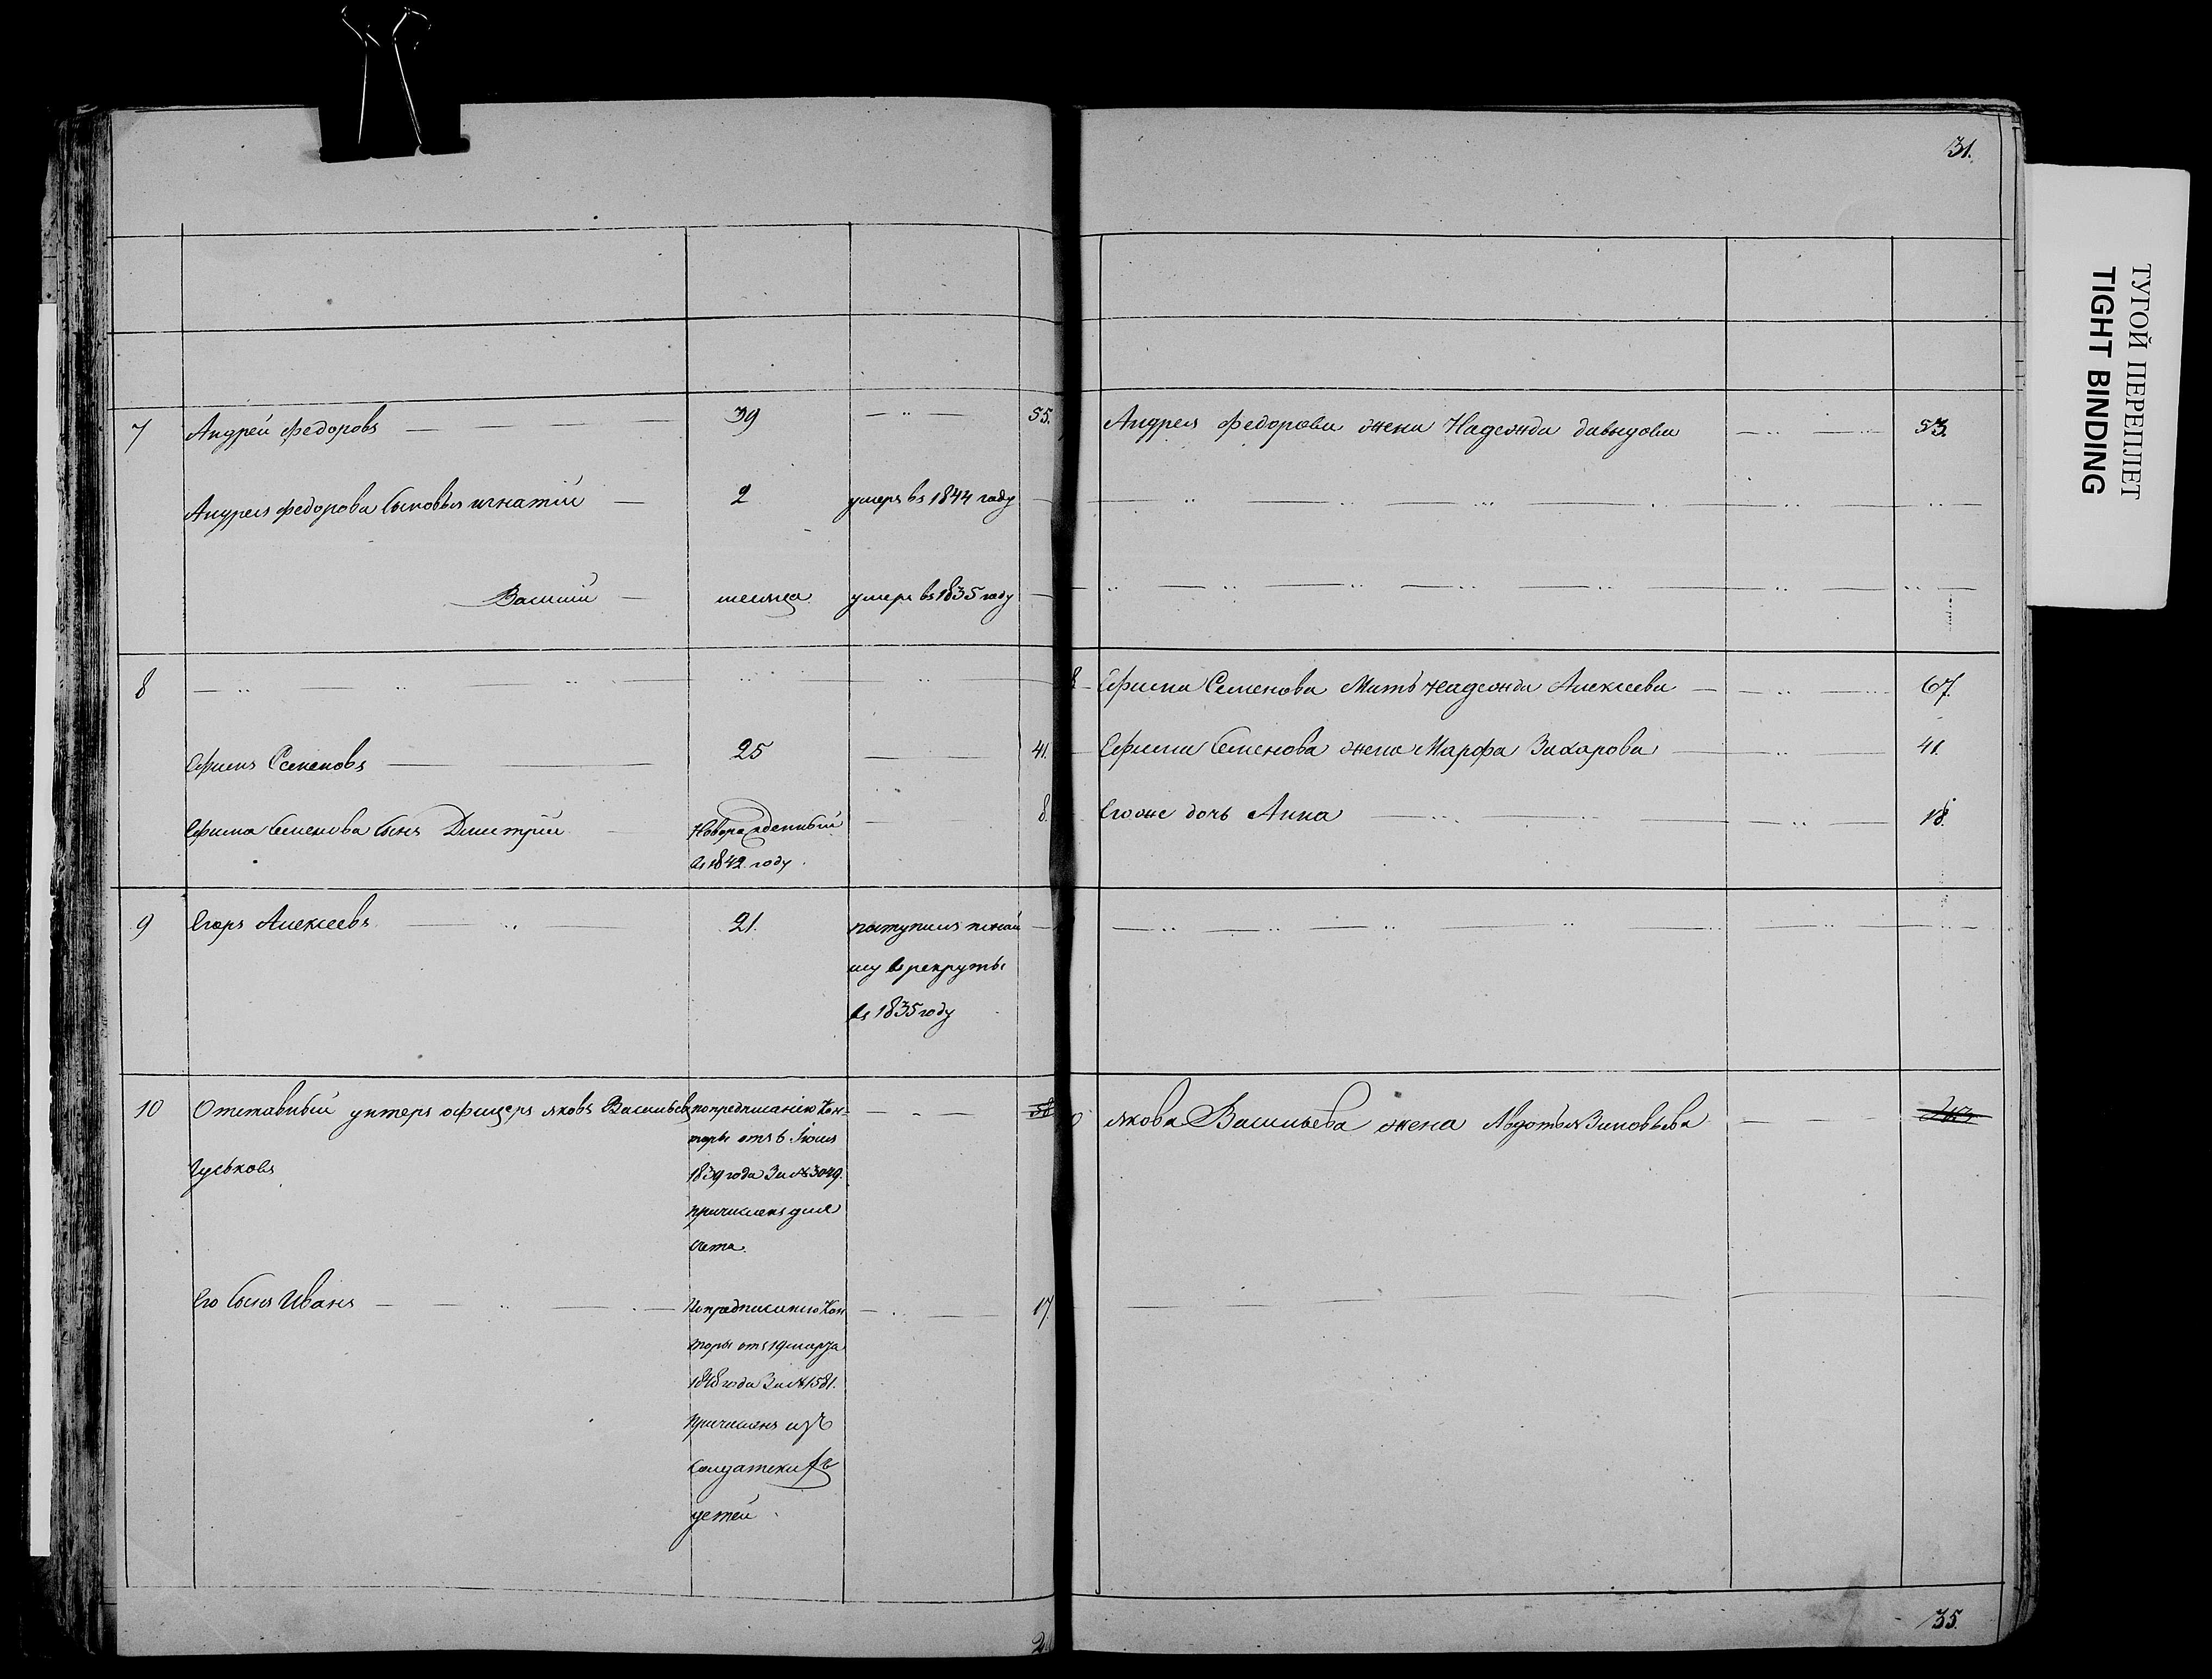 31.
7 Андрей Федоровъ 39 55.
Андрея Федорова сыновья игнатий 2 умеръ въ 1844 году
Василий умеръ въ 1835 году
8
Ефимъ Семеновъ 25 41.
Ефима Семенова сынъ Дмитрий Новорожденный 8.
въ 1842 году.
9 Егоръ Алексеевъ 21. поступилъ
въ рекруты
въ 1835 году
10 Отставный унтеръ офицеръ яковъ Васильевъ по предписанию Кон-
торы отъ 6 Июля
Гуськовъ 1839 года За № 3049.
причисленъ для
счета.
Его сынъ Иванъ По предписанию Кон 17.
торы отъ 19 марта
1848 года За № 1581.
Причисленъ изъ
солдатскихъ
детей
Андрея Федорова жена Надежда давыдова 53.
8 Ефима Семенова Мать надежда Алексеева 67.
Ефима Семенова жена Марфа Захарова 41.
Его же дочь Анна 18.
якова Васильева жена Авдотья Зиновьева
35.
ТУГОЙ ПЕРЕПЛЕТ
TIGHT BINDING